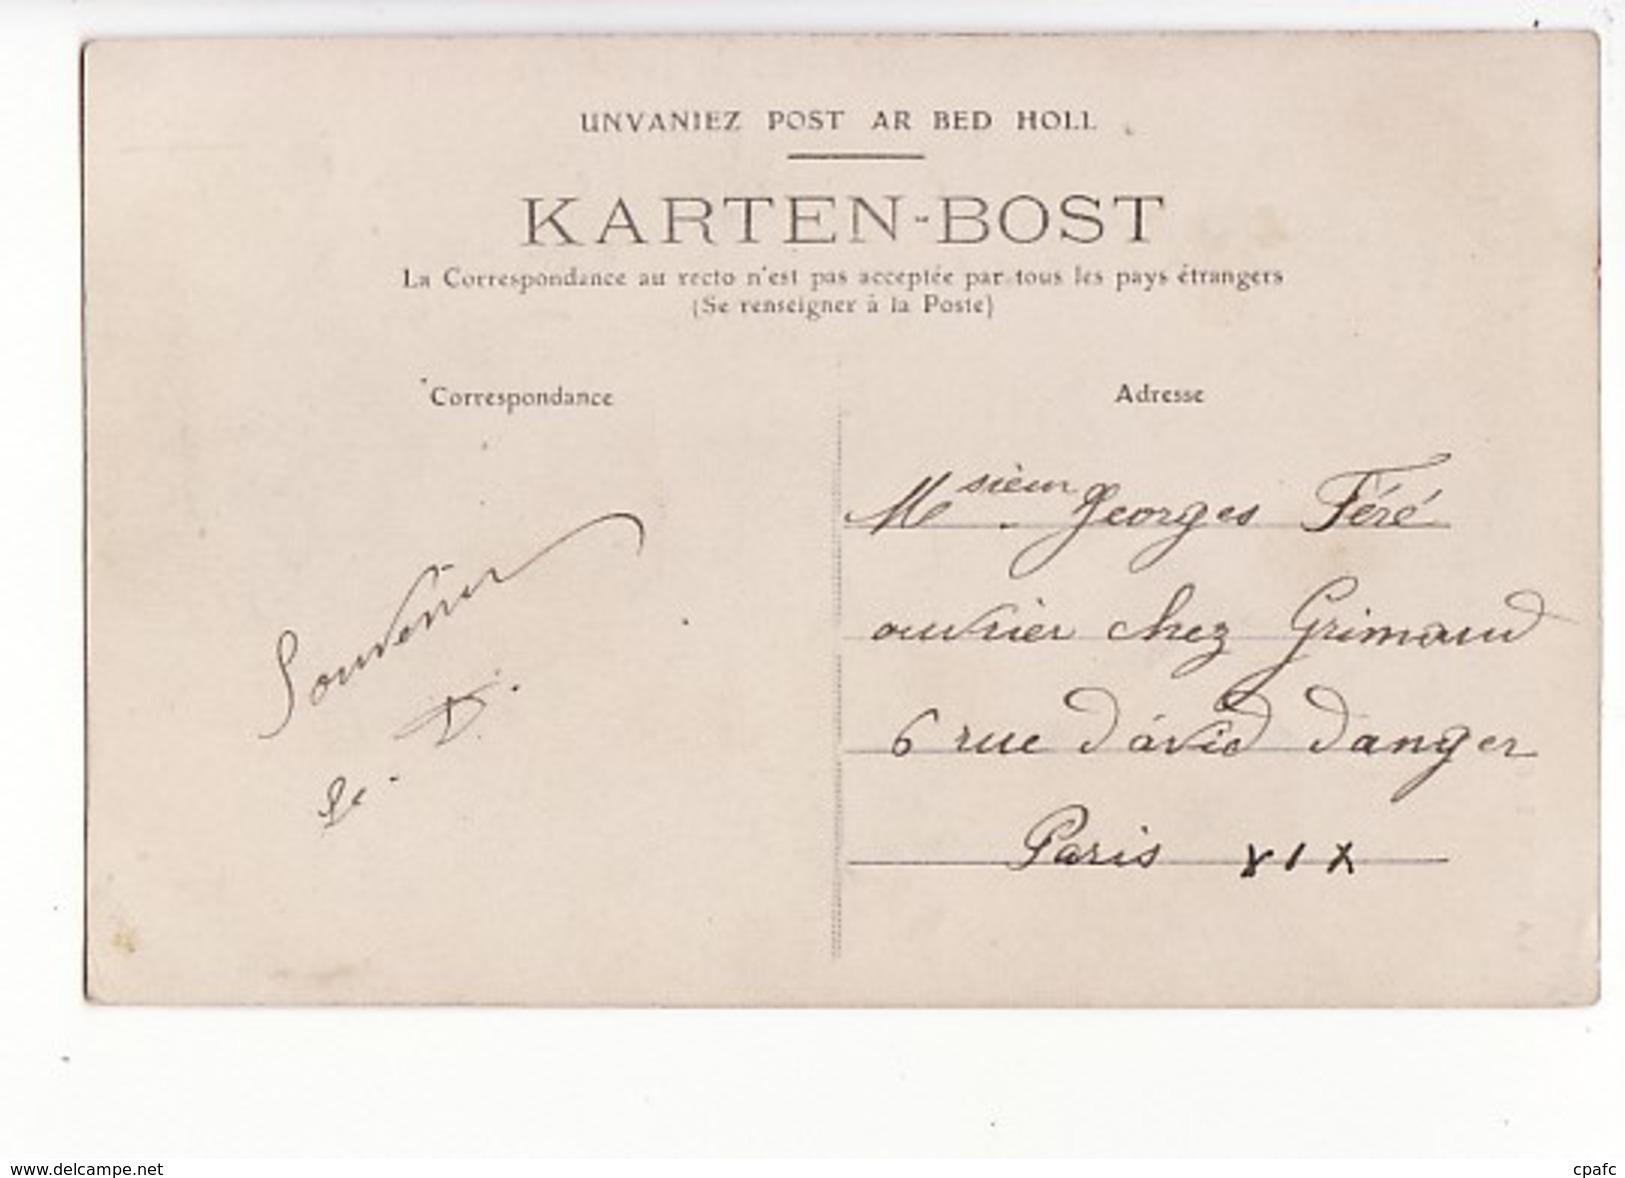 UNVANIEZ POST AR BED HOLL
KARTEN-BOST
La Correspondance au recto n'est pas acceptée par tous les pays étrangers
(Se renseigner à la Poste)
Correspondance
Souvenir
Adresse
Msieur Georges Féré
ouvrier chez Grimaud
6 rue David Danger
Paris XIX
www.delcampe.net
cpafc